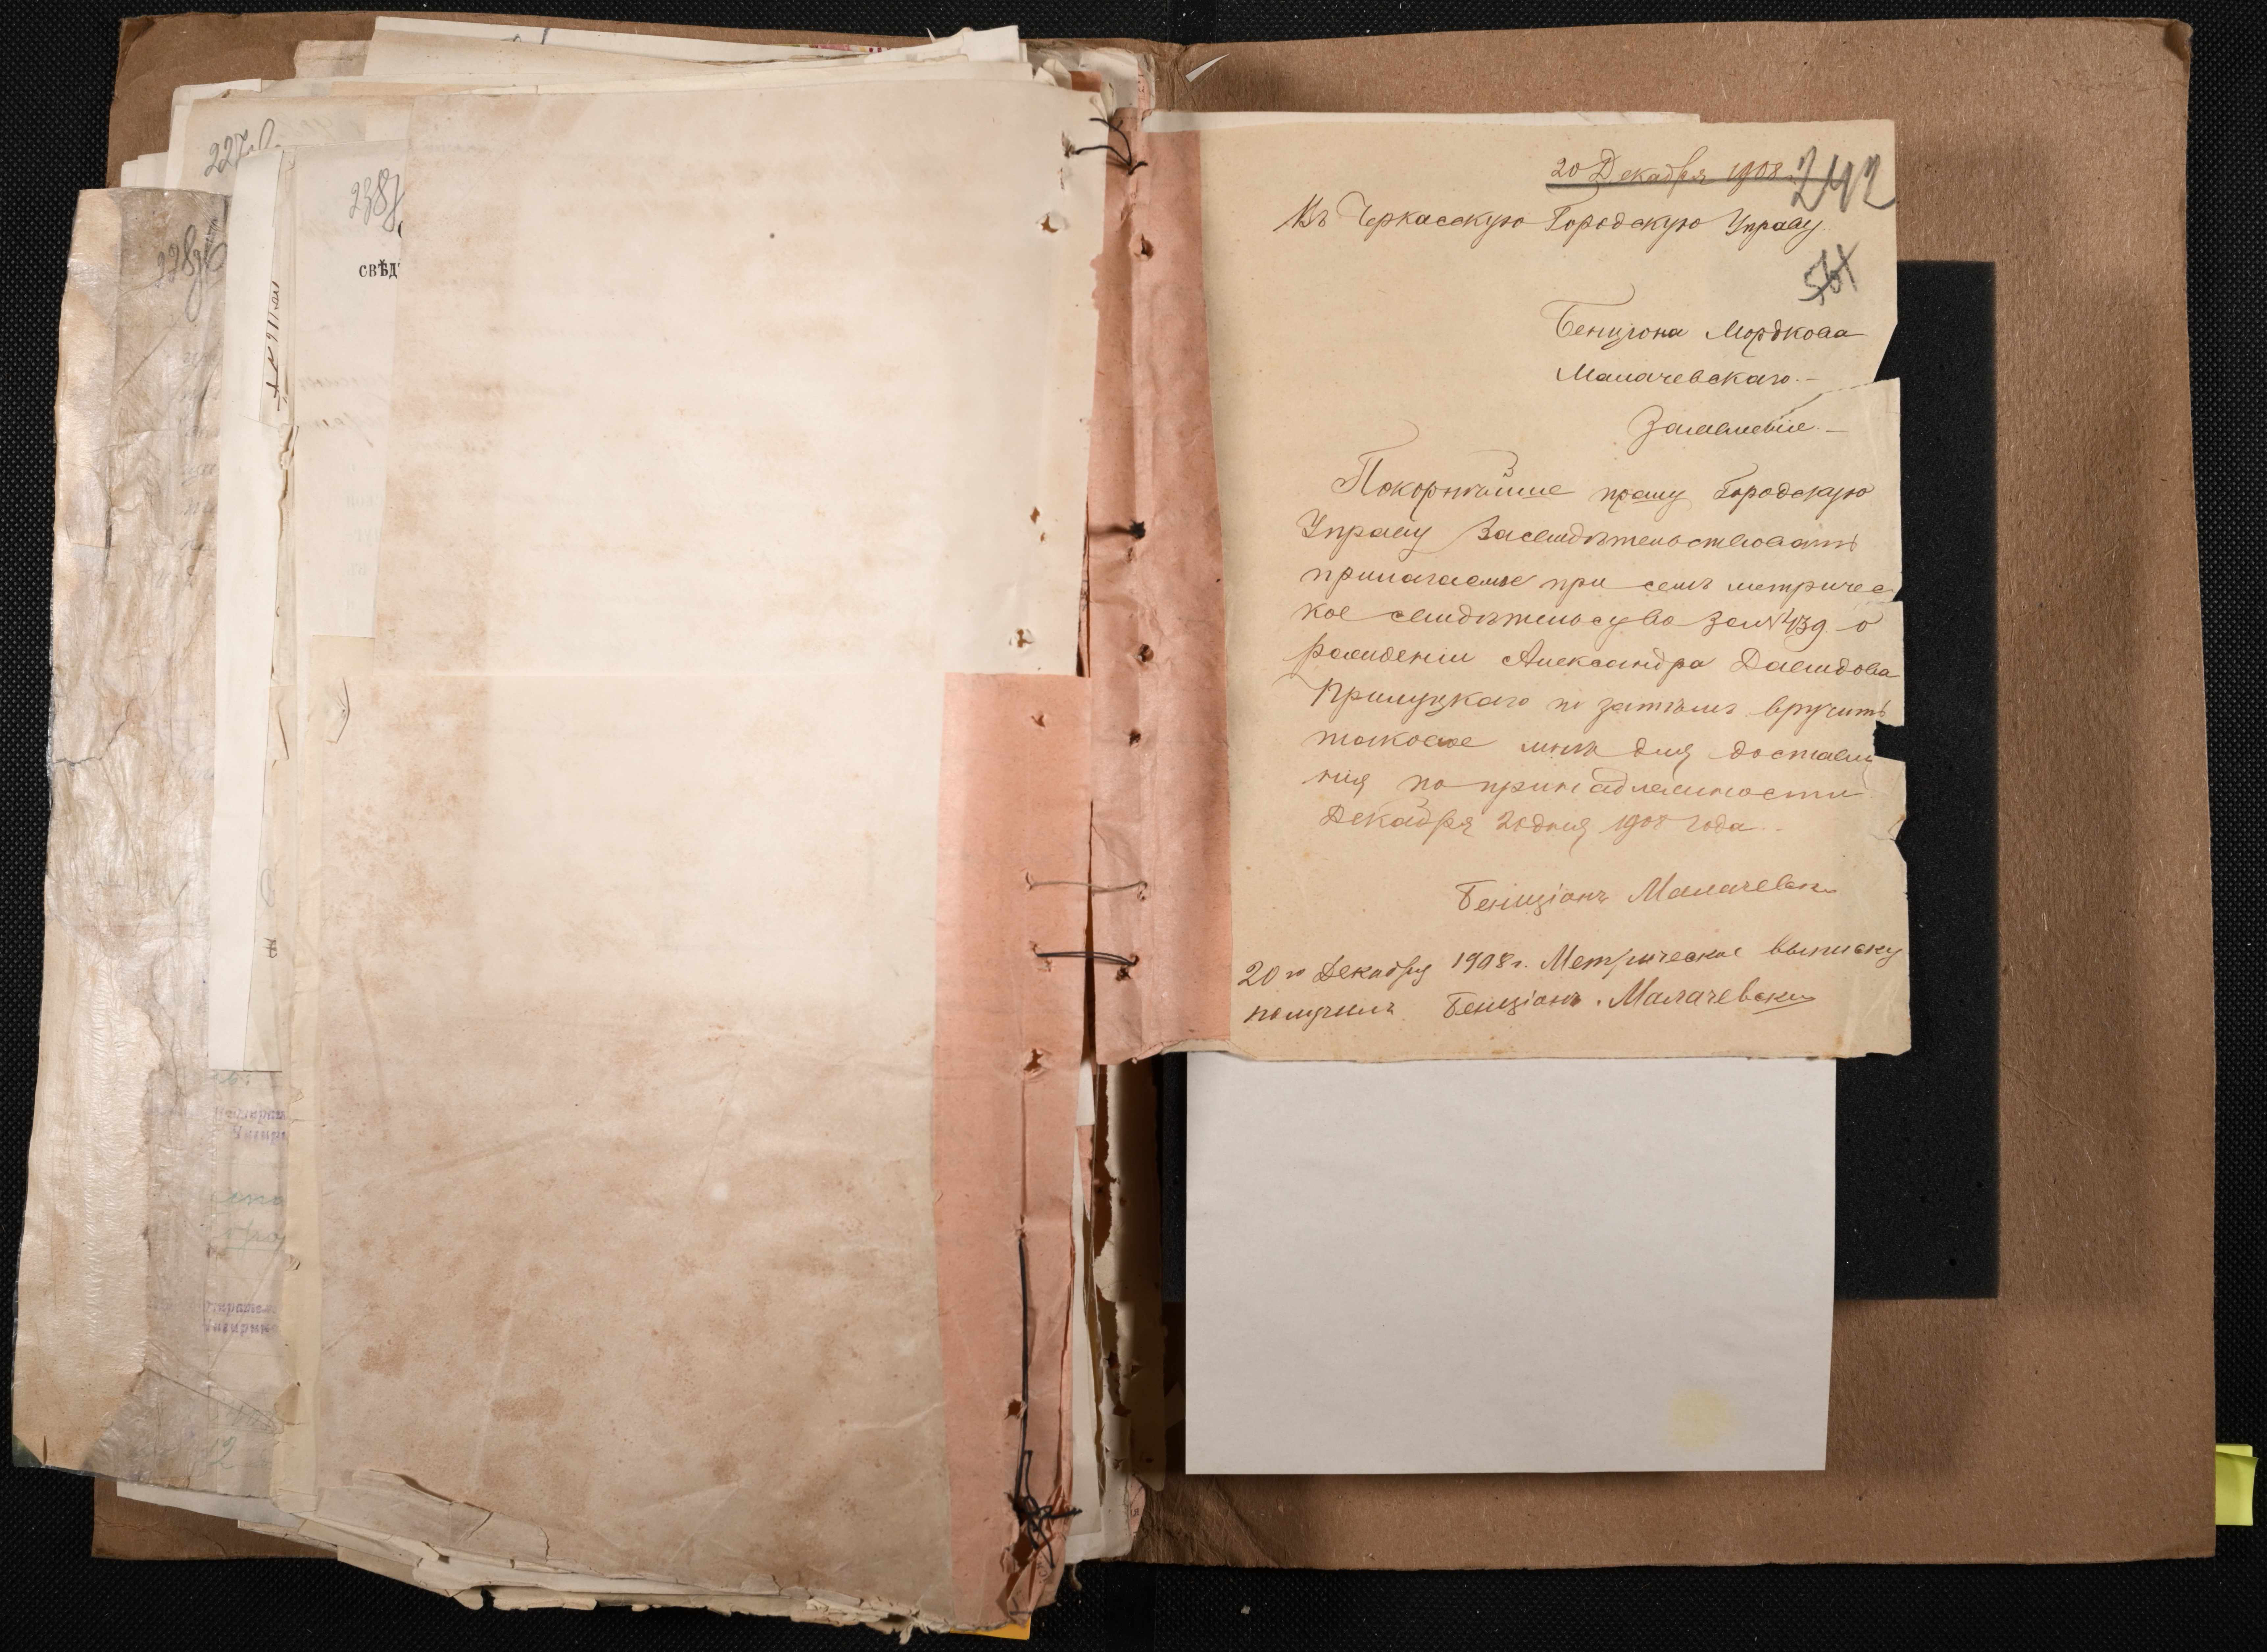 227
238
СВѢД
20 Декабря 1908
242
Въ Черкасскую Городскую Управу
Бенциона Мордкова
Малачевскаго.-
Заявленіе.-
Покорнѣйше прошу Городскую
Управу Засвидѣтельствовать
прилагаемое при семъ метричес
кое свидѣтельство за № 439 о
рожденіи Александра Давидова
Прилуцкаго и затѣмъ вручить
таковое мнѣ для доставле
нія по принадлежности
Декабря 20 дня 1908 года.
Бенціонъ Малачевски
20го Декабря 1908 г. Метрическое выписку
получилъ Бенціонъ. Малачевски